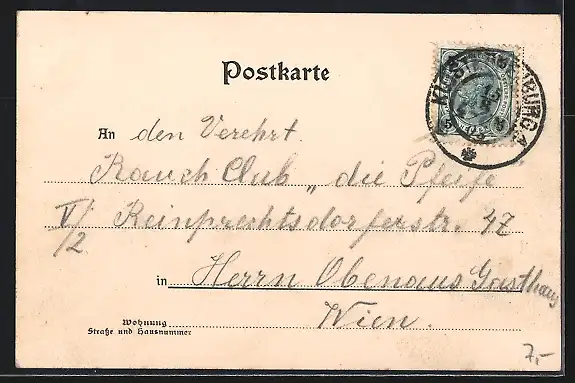 Postkarte
An den Verehrt.
Rauch Club „die Pfeife
V/2 Reinprechtsdorferstr. 47
in Herrn Obenaus Gasthaus
Wien.
Wohnung
Straße und Hausnummer
7,-